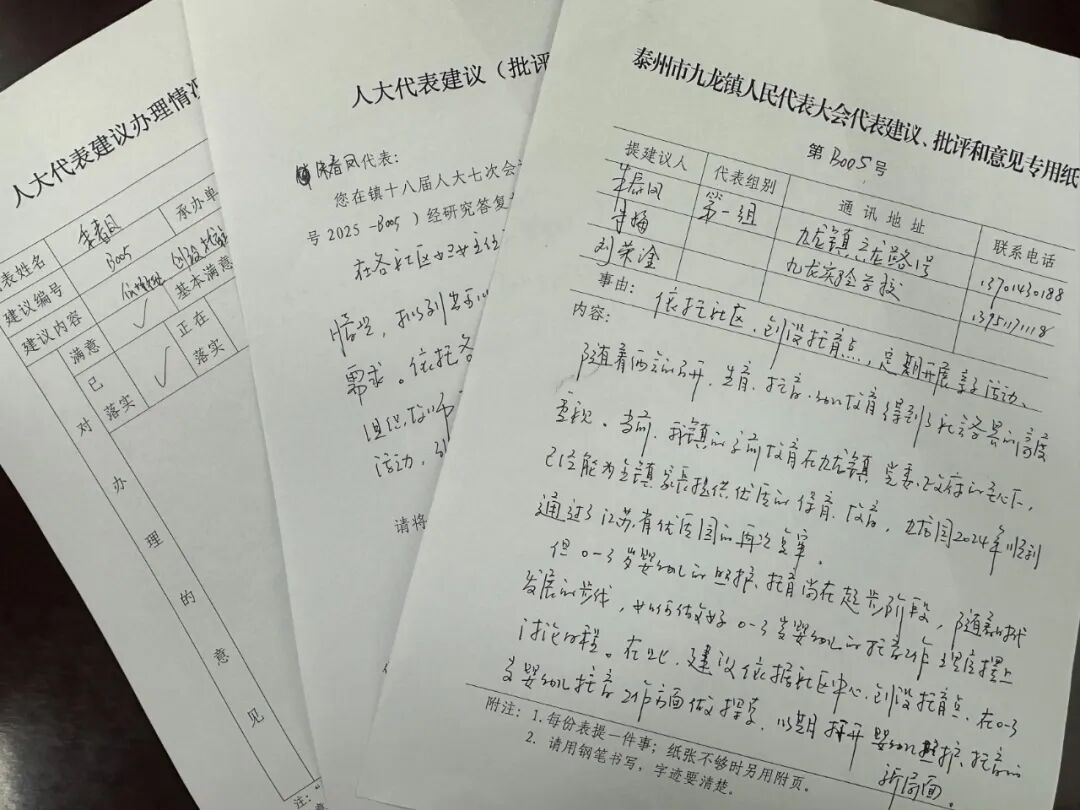 人大代表建议办理情况
代表姓名
朱春凤
承办单
建议编号
B005
建议内容
满意
✓
基本满意
已落实
✓
正在落实
对办理的意见
注:
人大代表建议(批评
朱春凤代表:
您在镇十八届人大七次会
号2025-B005)经研究答复
在各社区
需求。依托各
活动,
请将
泰州市九龙镇人民代表大会代表建议、批评和意见专用纸
第B005号
提建议人
代表组别
通讯地址
联系电话
朱春凤
第一组
九龙镇龙路1号
13701430188
李梅
九龙实验学校
13951171118
刘荣淦
事由:依托社区,创设托育点,定期开展亲子活动
内容:
随着两会的召开,生育、托育、幼儿教育得到了社会各界的高度
重视。当前,我镇的学前教育在九龙镇党委政府的关心下,
已经能为全镇家长提供优质的保育、教育,九幼园2024年顺利
通过了江苏省优质园的再次复审。
但0-3岁婴幼儿的照护、托育尚在起步阶段,随着时代
发展的步伐,如何做好0-3岁婴幼儿的托育工作理应摆上
讨论日程。在此,建议依据社区中心,创设托育点,在0-3
岁婴幼儿托育工作方面做探索,以期打开婴幼儿照护、托育的
新局面。
附注:1.每份表提一件事;纸张不够时另用附页。
2.请用钢笔书写,字迹要清楚。